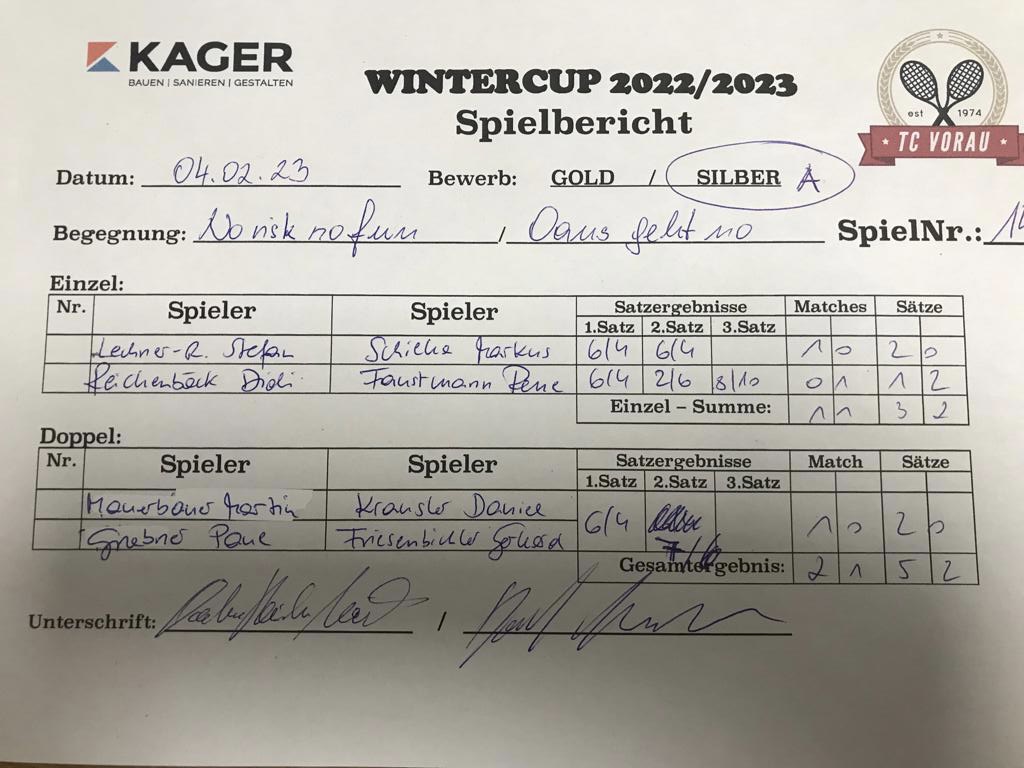 KAGER
BAUEN | SANIEREN | GESTALTEN
WINTERCUP 2022/2023
Spielbericht
est 1974
TC VORAU
Datum: 04.02.23 Bewerb: GOLD / SILBER A
Begegnung: No risk no fun / Oans geht no SpielNr.:
Einzel:
Nr. Spieler Spieler Satzergebnisse Matches Sätze
1.Satz 2.Satz 3.Satz
Lechner-R. Stefan Markus 6/4 6/4 1 0 2 0
Reichenbäck Didi Faustmann Rene 6/4 2/6 8/10 0 1 1 2
Einzel – Summe: 1 1 3 2
Doppel:
Nr. Spieler Spieler Satzergebnisse Match Sätze
1.Satz 2.Satz 3.Satz
Martin Daniel
6/4 7/6 1 0 2 0
Friesenbichler
Gesamtergebnis: 2 1 5 2
Unterschrift: /